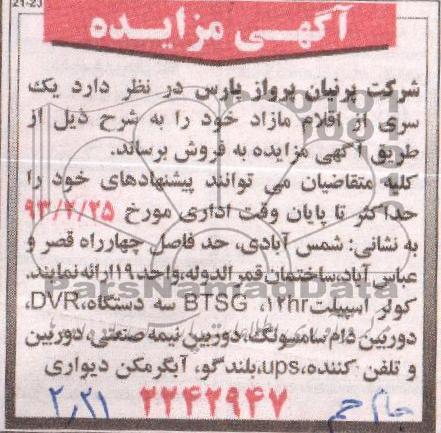 21-23
آگهی مزایده
شرکت پرنیان پرواز پارس در نظر دارد یک
سری از اقلام مازاد خود را به شرح ذیل از
طریق آگهی مزایده به فروش برساند.
کلیه متقاضیان می توانند پیشنهادهای خود را
حداکثر تا پایان وقت اداری مورخ ۹۳/۲/۲۵
به نشانی: شمس آبادی، حد فاصل چهارراه قصر و
عباس آباد،ساختمان قمر الدوله،واحد۱۹ارائه نمایند.
کولر اسپیلت۱۲hr، BTSG سه دستگاه،DVR،
دوربین دام سامسونگ،دوربین نیمه صنعتی،دوربین
و تلفن کننده،ups،بلندگو، آبگرمکن دیواری
۲۲۴۲۹۴۷
جام جم ۲٫۲۱
ParsNamadData